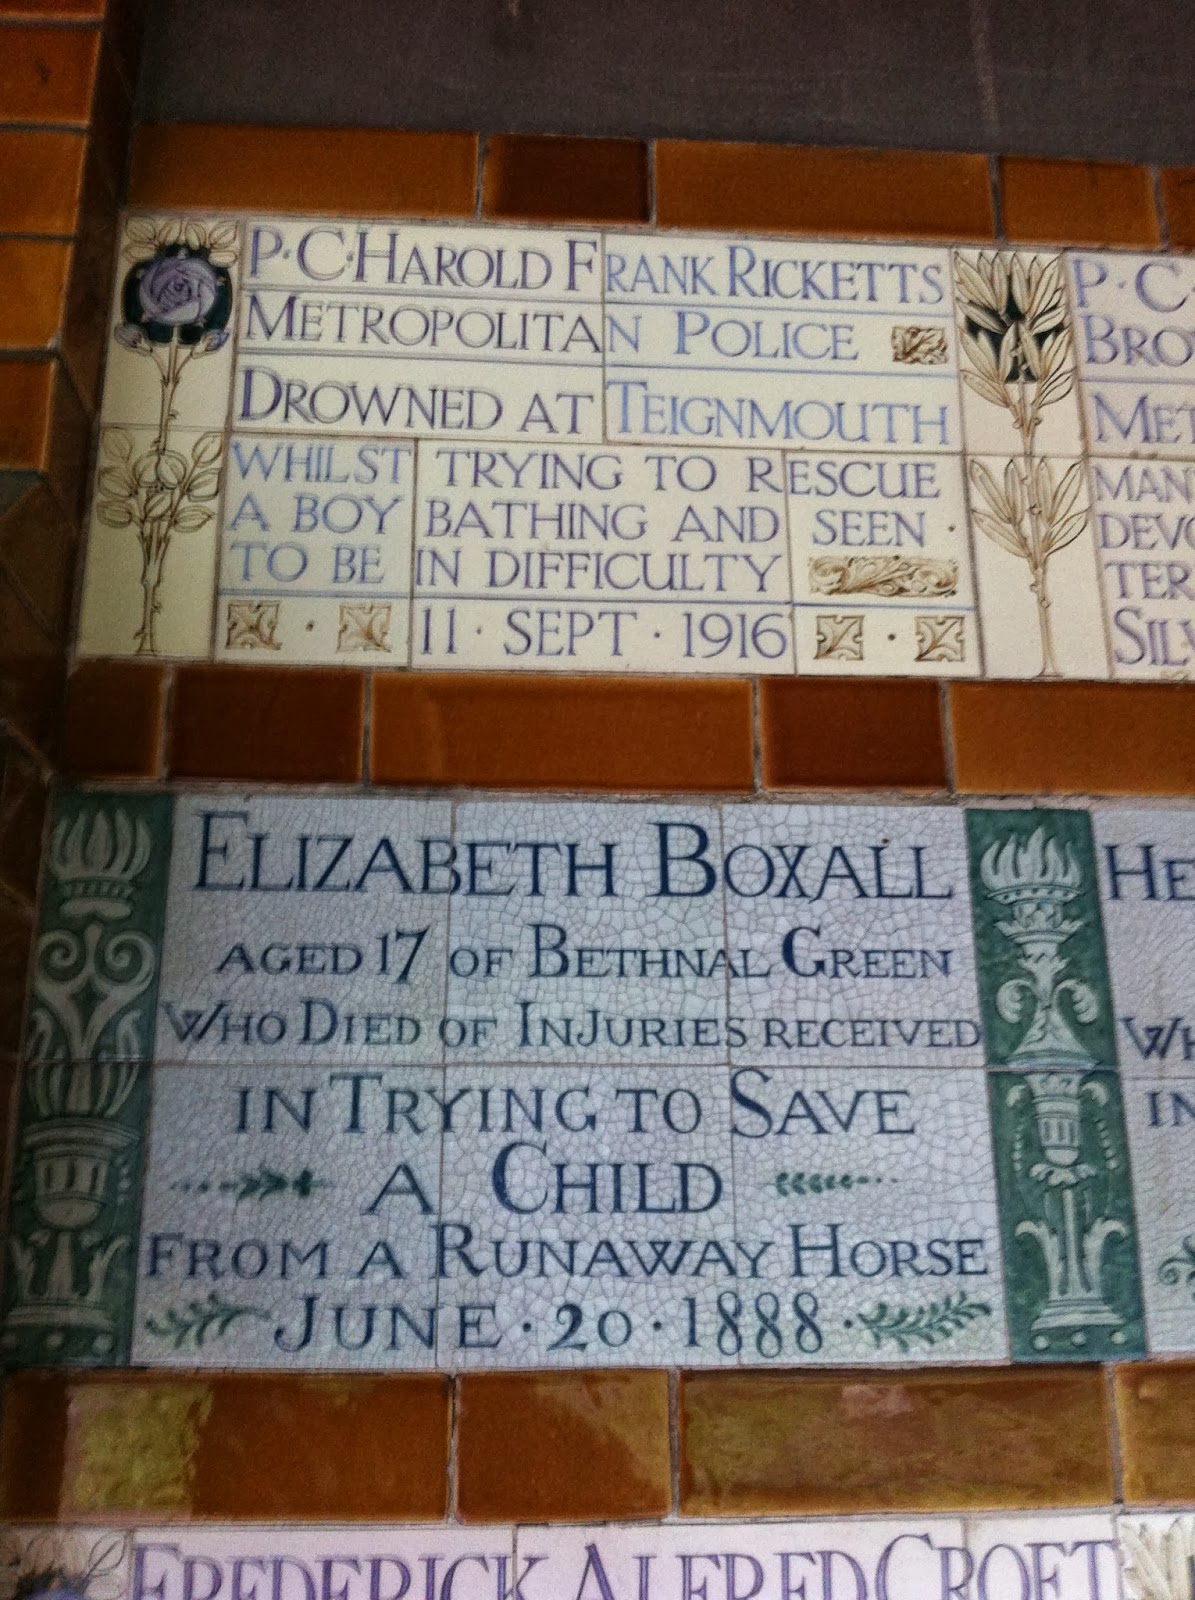 P·C·HAROLD FRANK RICKETTS
METROPOLITAN POLICE
DROWNED AT TEIGNMOUTH
WHILST TRYING TO RESCUE
A BOY BATHING AND SEEN ·
TO BE IN DIFFICULTY
· 11 · SEPT · 1916 ·
P·C·
BRO
MET
MAN
DEVO
TER
SILV
ELIZABETH BOXALL
AGED 17 OF BETHNAL GREEN
WHO DIED OF INJURIES RECEIVED
IN TRYING TO SAVE
A CHILD
FROM A RUNAWAY HORSE
JUNE · 20 · 1888 ·
HE
WH
IN
FREDERICK ALFRED CROFT